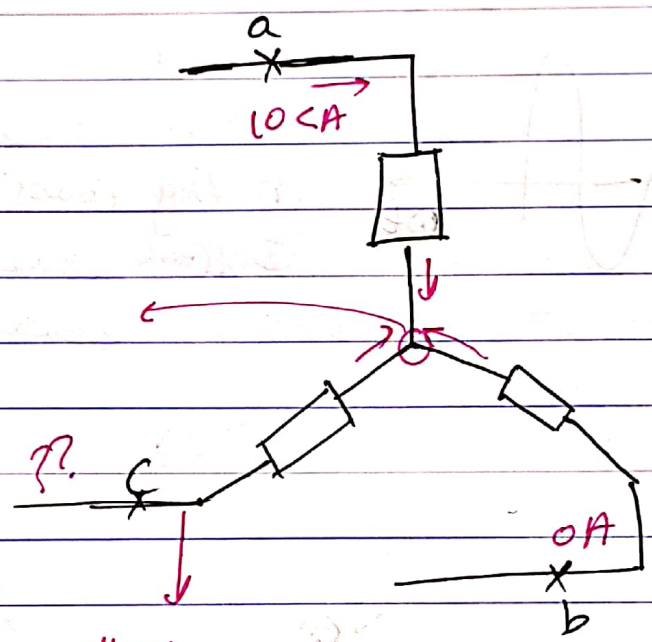 a
10<A
??
C
0A
b